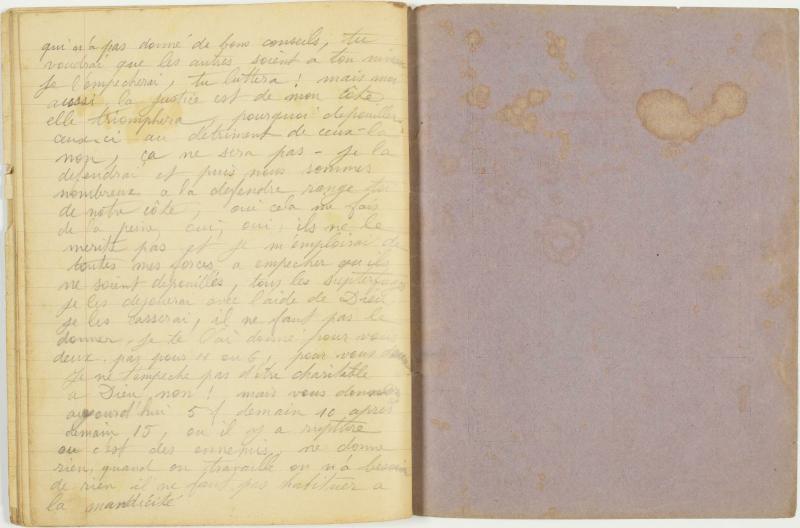 qui n'a pas donné de bons conseils, tu
voudrai que les autres soient a ton niveau
je l'empecherai, tu luttera ! mais moi
aussi, la justice est de mon côté
elle triomphera, pourquoi depouiller
ceux-ci au detriment de ceux-la
non, ça ne sera pas - je la
defendrai et puis nous sommes
nombreux a la defendre, range toi
de notre côté, oui cela me fais
de la peine, oui, oui, ils ne le
merite pas et je m'emploirai de
toutes mes forces a empecher qu'ils
ne soient depouillés, tous les supterfuges
je les dejouerai avec l'aide de Dieu
je les casserai, il ne faut pas le
donner, je te l'ai donné pour vous
deux pas pour ou 6, pour vous deux
Je ne t'empeche pas d'etre charitable
a Dieu non ! mais vous donnez
aujourd'hui 5 f demain 10 apres
demain 15, ou il y a rupture
ou c'est des ennemis, ne donne
rien, quand on travaille on n'a besoin
de rien il ne faut pas habituer a
la mandicité